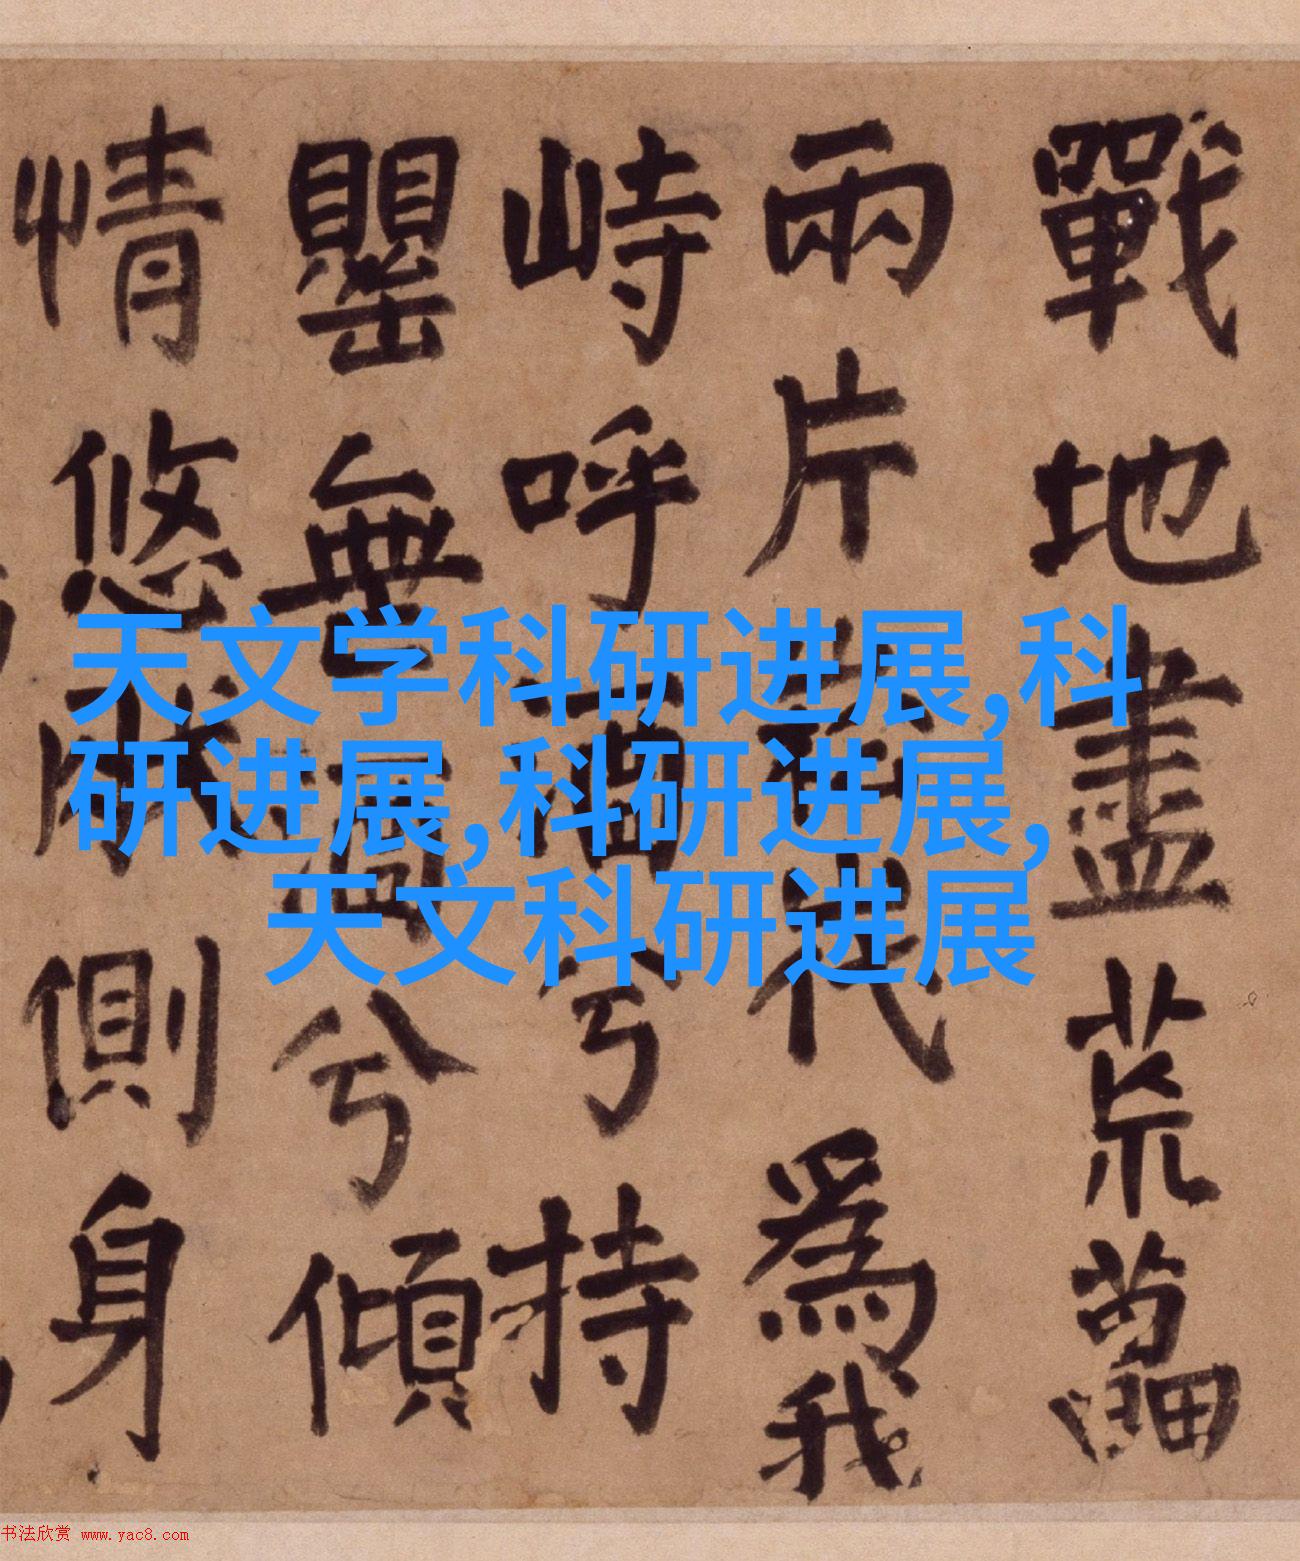 戰地盡荒
兩片代爲我
峙呼酒兮持
罌無兮傾
情悠側身
天文学科研进展,科
研进展,科研进展,
天文科研进展
书法欣赏 www.yac8.com